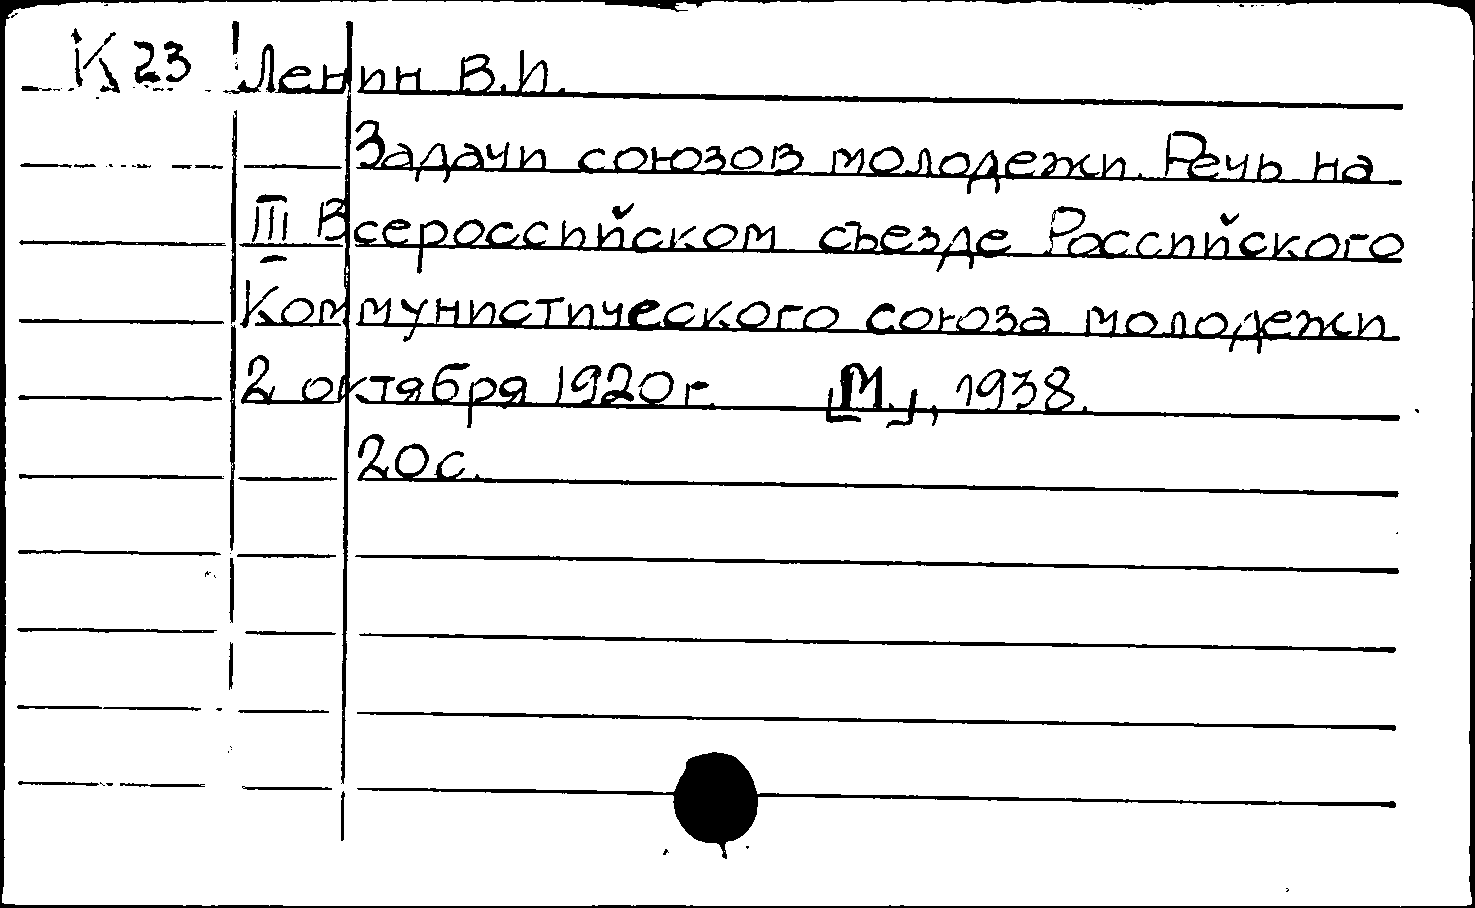 К 23 Ленин В.И.
Задачи союзов молодежи. Речь на
III Всероссийском съезде Российского
Коммунистического союза молодежи
2 октября 1920 г. [М.], 1938.
20 с.